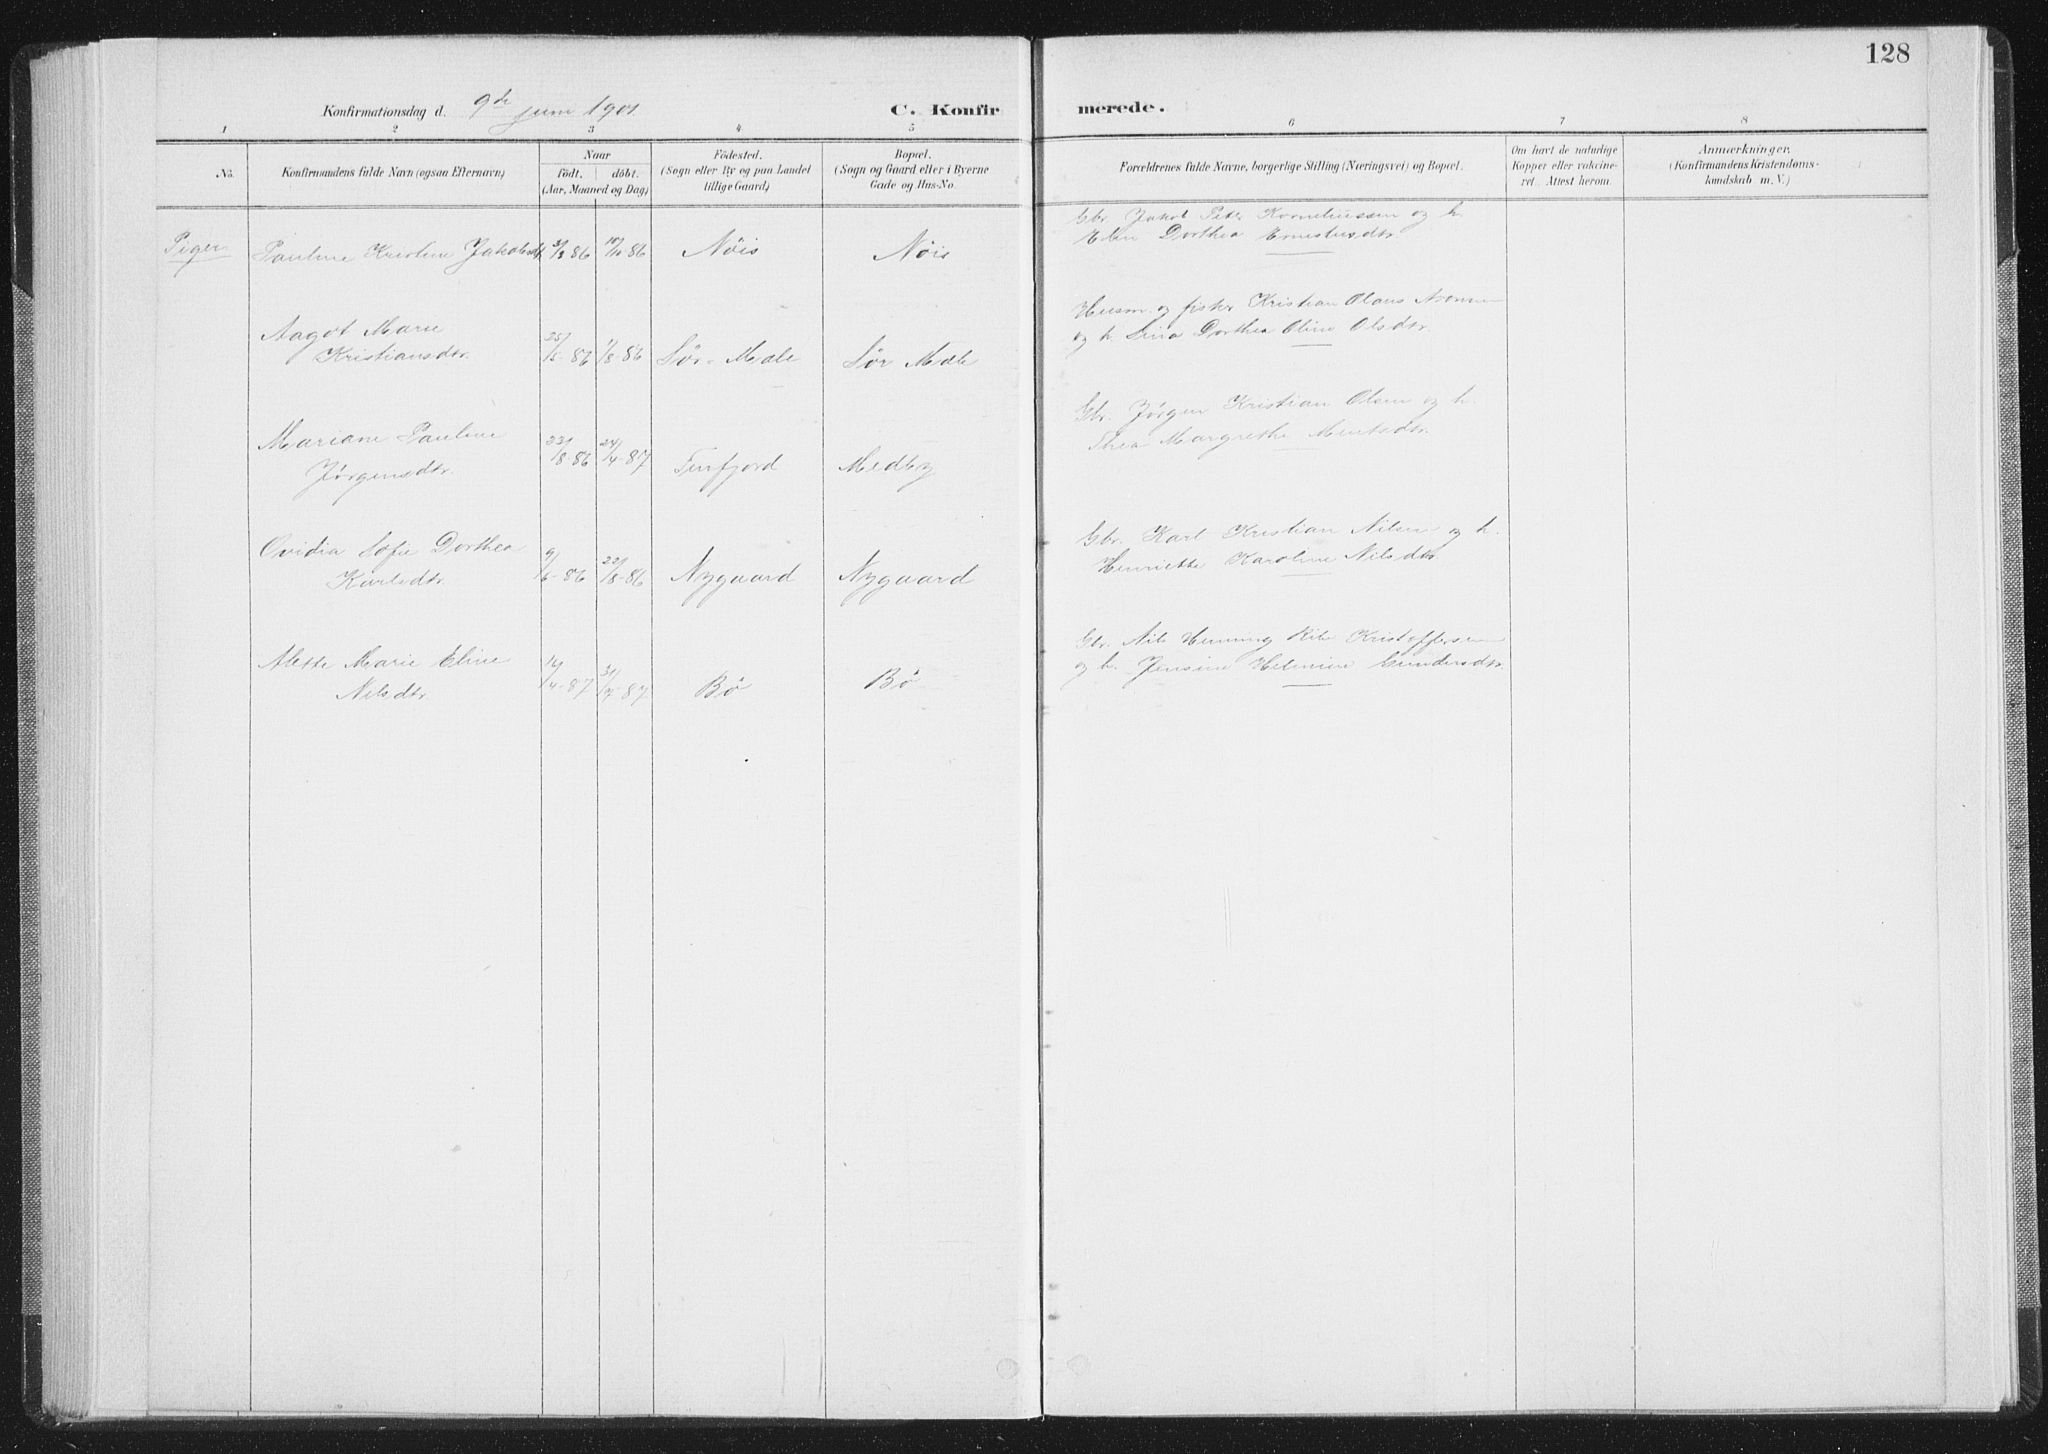 128
Konfirmationsdag d. 9de juni 1901.
C. Konfirmerede.
1 2 3 4 5 6 7 8
No.
Konfirmandens fulde Navn (ogsaa Efternavn)
Naar
födt. döbt.
(Aar, Maaned og Dag)
Födested.
(Sogn eller By og paa Landet tillige Gaard)
Bopæl.
(Sogn og Gaard eller i Byerne Gade og Hus-No.
Forældrenes fulde Navne, borgerlige Stilling (Næringsvei) og Bopæl.
Om havt de naturlige Kopper eller vakcineret. Attest herom.
Anmærkninger.
(Konfirmandens Kristendomskundskab m. V.)
Piger
Pauline Kristine Jakobsdt. 3/3 86 10/10 86 Nöis Nöis
Gbr. Jakob Peter Korneliussen og h.
Elen Dorthea Ernestusdtr.
Aagot Marie
Kristiansdtr. 25/5-86 1/8-86 Sør-Mæle Sør Mæle
Husm. og fisker Kristian Olaus Aronsen
og h. Lina Dorthea Oline Olsdtr.
Mariane Pauline
Jørgensdtr. 23/8-86 24/4-87 Finfjord Medby
Gbr. Jørgen Kristian Olsen og h.
Thea Margrethe Mentsdtr.
Ovidia Sofie Dorthea
Karlsdtr. 9/6-86 22/8-86 Nygaard Nygaard
Gbr. Karl Kristian Nilsen og h.
Henriette Karoline Nilsdtr.
Alette Marie Eline
Nilsdtr. 14/4-87 Bö Bö
Gbr. Nils Henning Kristoffersen
og h. Jensine Helmine Gundersdtr.